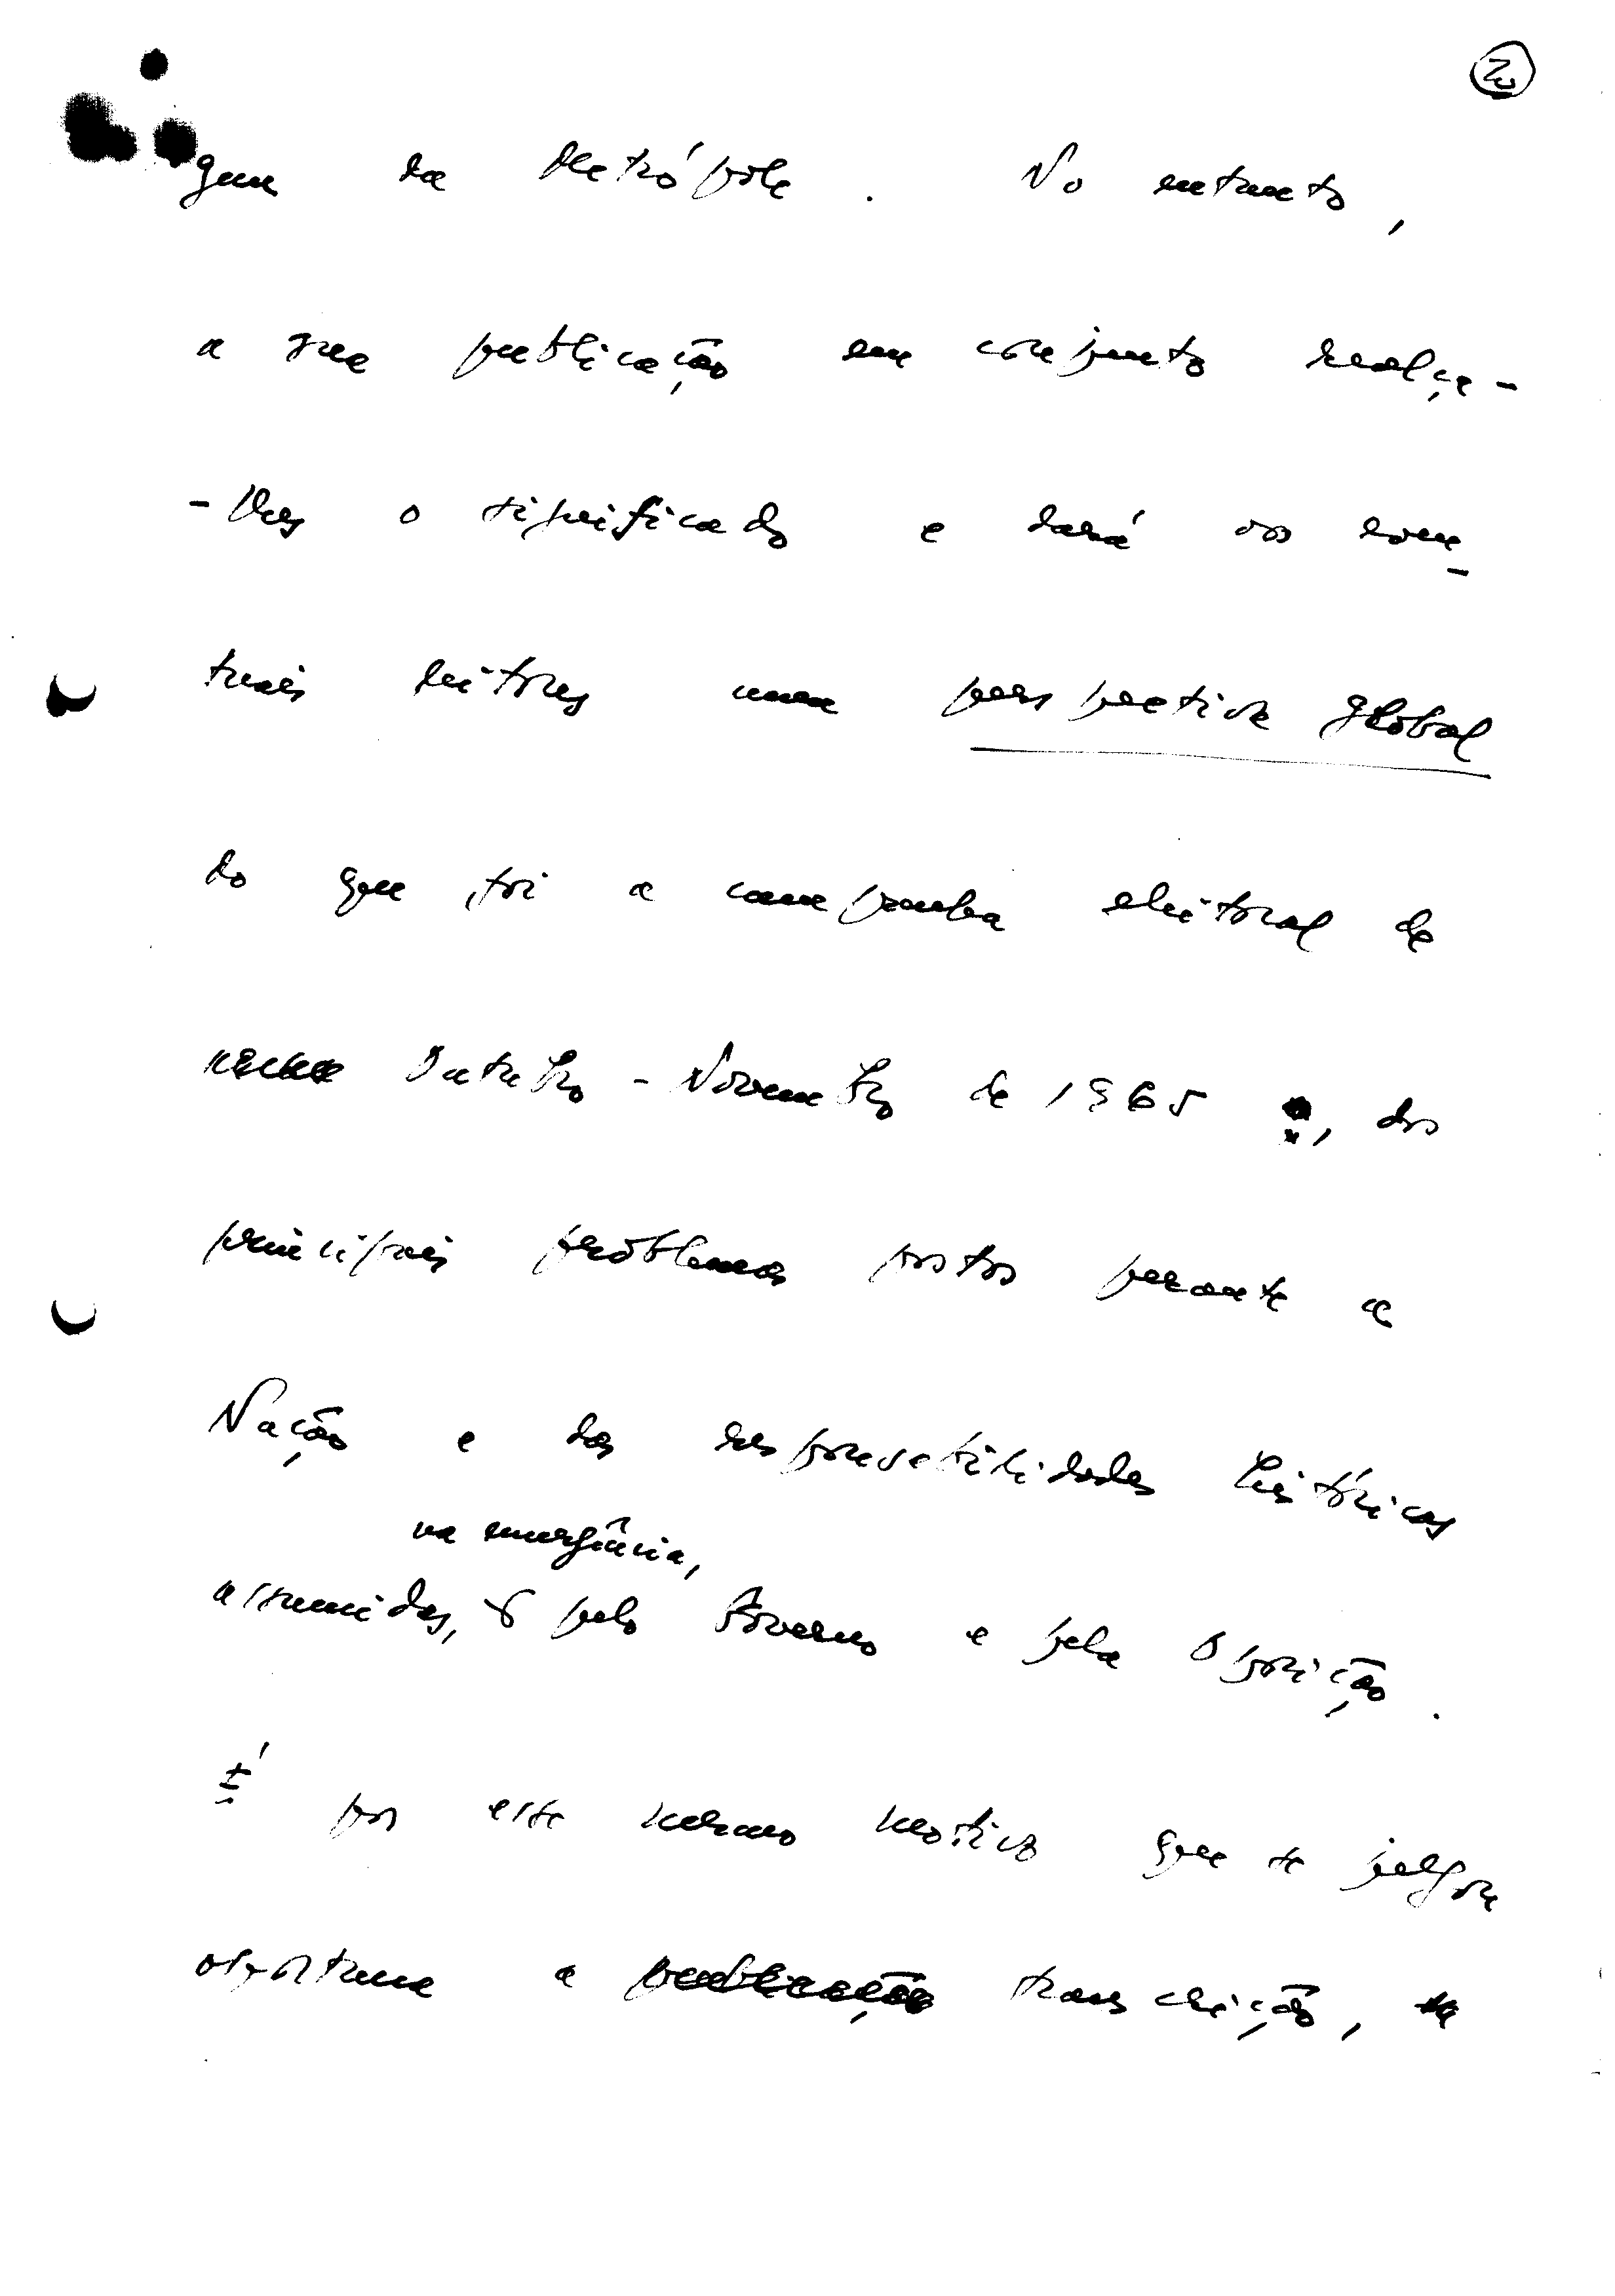 gem da Metrópole. No entanto,
a sua publicação em conjunto realça-
-lhes o significado e dará aos even-
tuais leitores uma perspectiva global
do que foi a campanha eleitoral de
Outubro-Novembro de 1965, dos
principais problemas postos perante a
Nação e das responsabilidades históricas
na emergência,
assumidas, pelo Governo e pela Oposição.
É por este mesmo motivo que se julgou
oportuna a publicação transcrição,